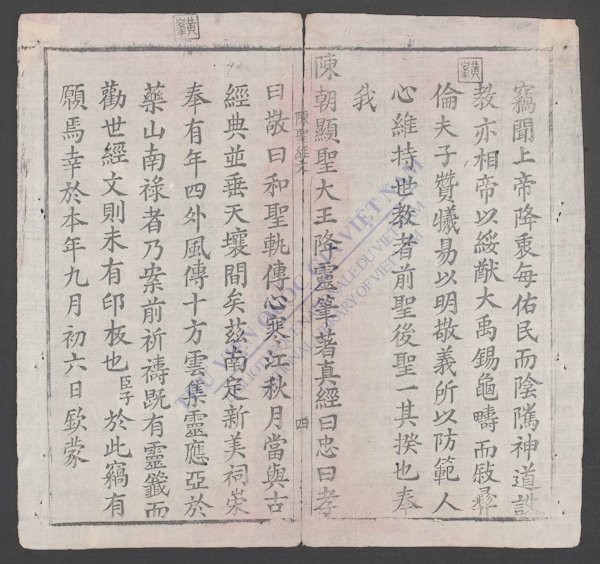 竊聞上帝降衷每佑民而陰隲神道設
教亦相帝以綏猷大禹錫龜疇而敍彝
倫夫子贊犧易以明敬義所以防範人
心維持世教者前聖後聖一其揆也奉
我
陳朝顯聖大王降靈筆著真經曰忠曰孝
陳聖經文
四
曰敬曰和聖軌傳心寒江秋月當與古
經典並垂天壤間矣茲南定新美祠崇
奉有年四外風傳十方雲集靈應亞於
藥山南祿者乃案前祈禱既有靈籤而
勸世經文則未有印板也臣子於此竊有
願焉幸於本年九月初六日欽蒙
THƯ VIỆN QUỐC GIA VIỆT NAM
BIBLIOTHÈQUE NATIONALE DU VIETNAM
NATIONAL LIBRARY OF VIETNAM